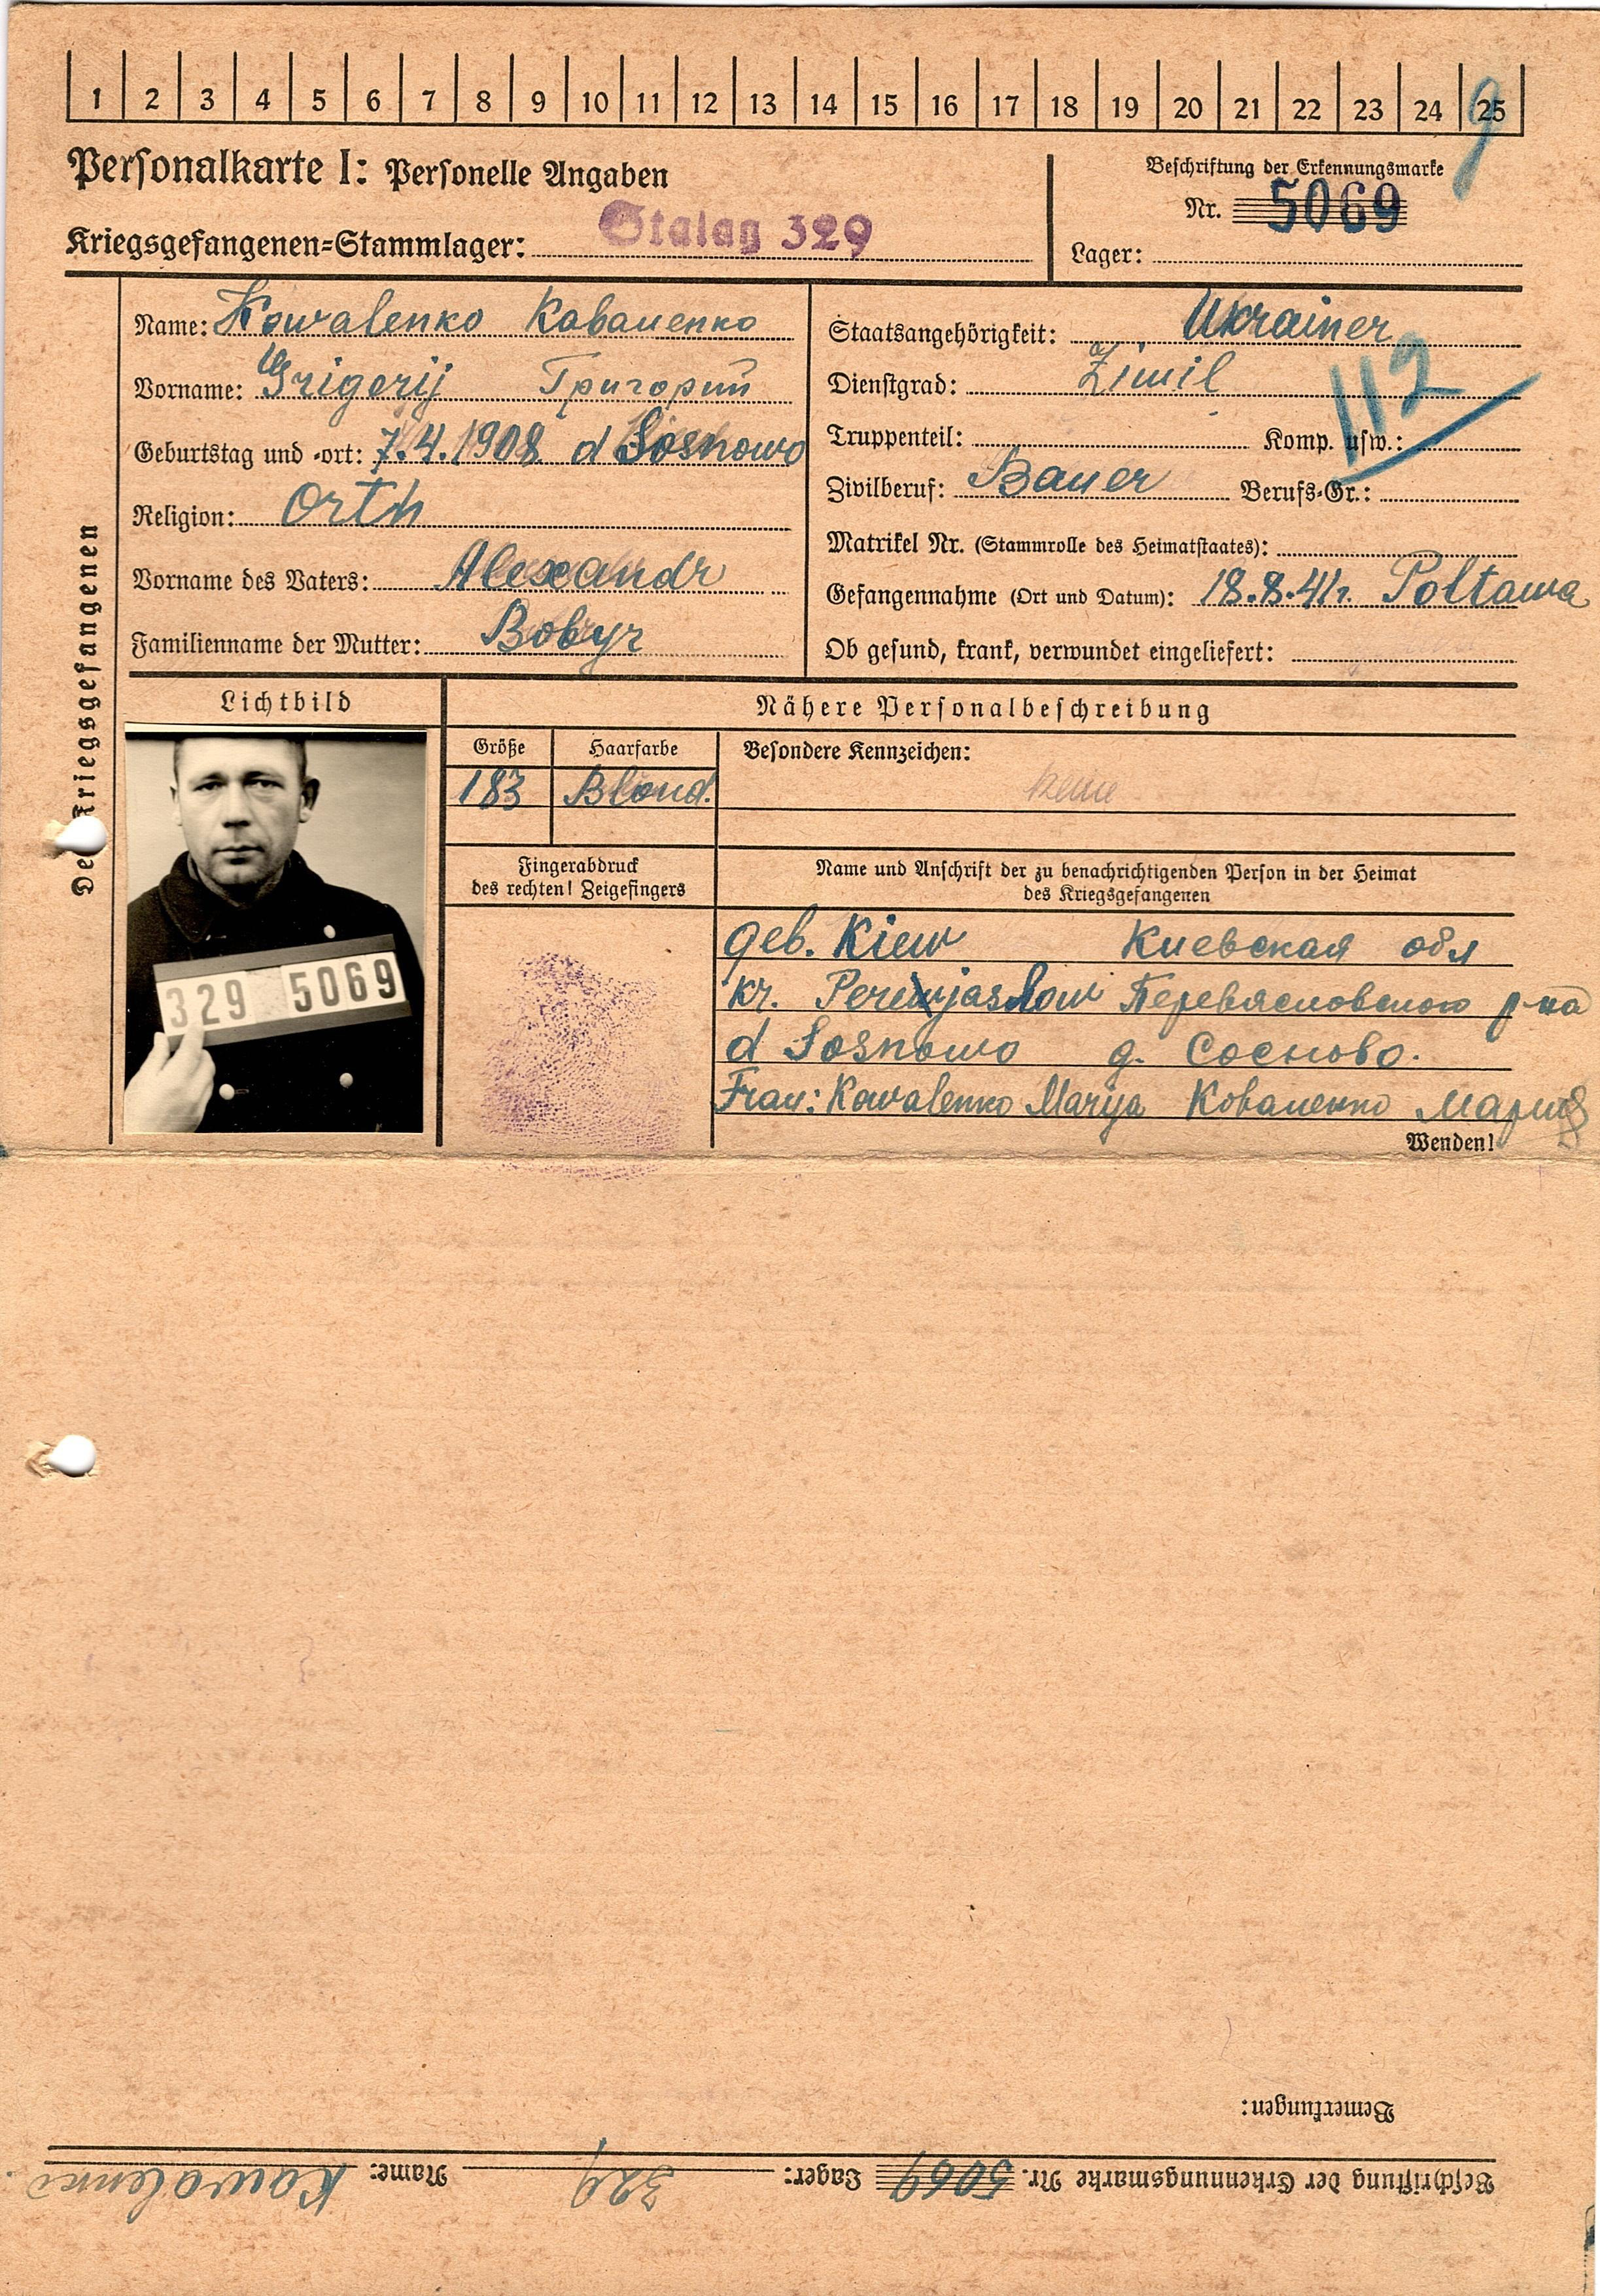 1 2 3 4 5 6 7 8 9 10 11 12 13 14 15 16 17 18 19 20 21 22 23 24 25
9
Personalkarte I: Personelle Angaben
Kriegsgefangenen=Stammlager: Stalag 329
Beschriftung der Erkennungsmarke
Nr. 5069
Lager:
Des Kriegsgefangenen
Name: Kowalenko Коваленко
Vorname: Grigorij Григорий
Geburtstag und -ort: 7.4.1908 d Sosnowo
Religion: Orth
Vorname des Vaters: Alexandr
Familienname der Mutter: Bobyr
Staatsangehörigkeit: Ukrainer
Dienstgrad: Zimil
112
Truppenteil: Komp. usw.:
Zivilberuf: Bauer Berufs=Gr.:
Matrikel Nr. (Stammrolle des Heimatstaates):
Gefangennahme (Ort und Datum): 18.8.41r. Poltawa
Ob gesund, krank, verwundet eingeliefert:
Lichtbild
329 5069
Nähere Personalbeschreibung
Größe Haarfarbe
183 Blond.
Besondere Kennzeichen:
keine
Fingerabdruck
des rechten! Zeigefingers
Name und Anschrift der zu benachrichtigenden Person in der Heimat
des Kriegsgefangenen
geb. Kiew Киевская обл
kr. Perewjaslow Перевясловского р-на
d Sosnowo д. Сосново.
Frau: Kowalenko Marija Коваленко Мария
Wenden!
Bemerkungen:
Beschriftung der Erkennungsmarke Nr. 5069 Lager: 329 Name: Kowalenko.